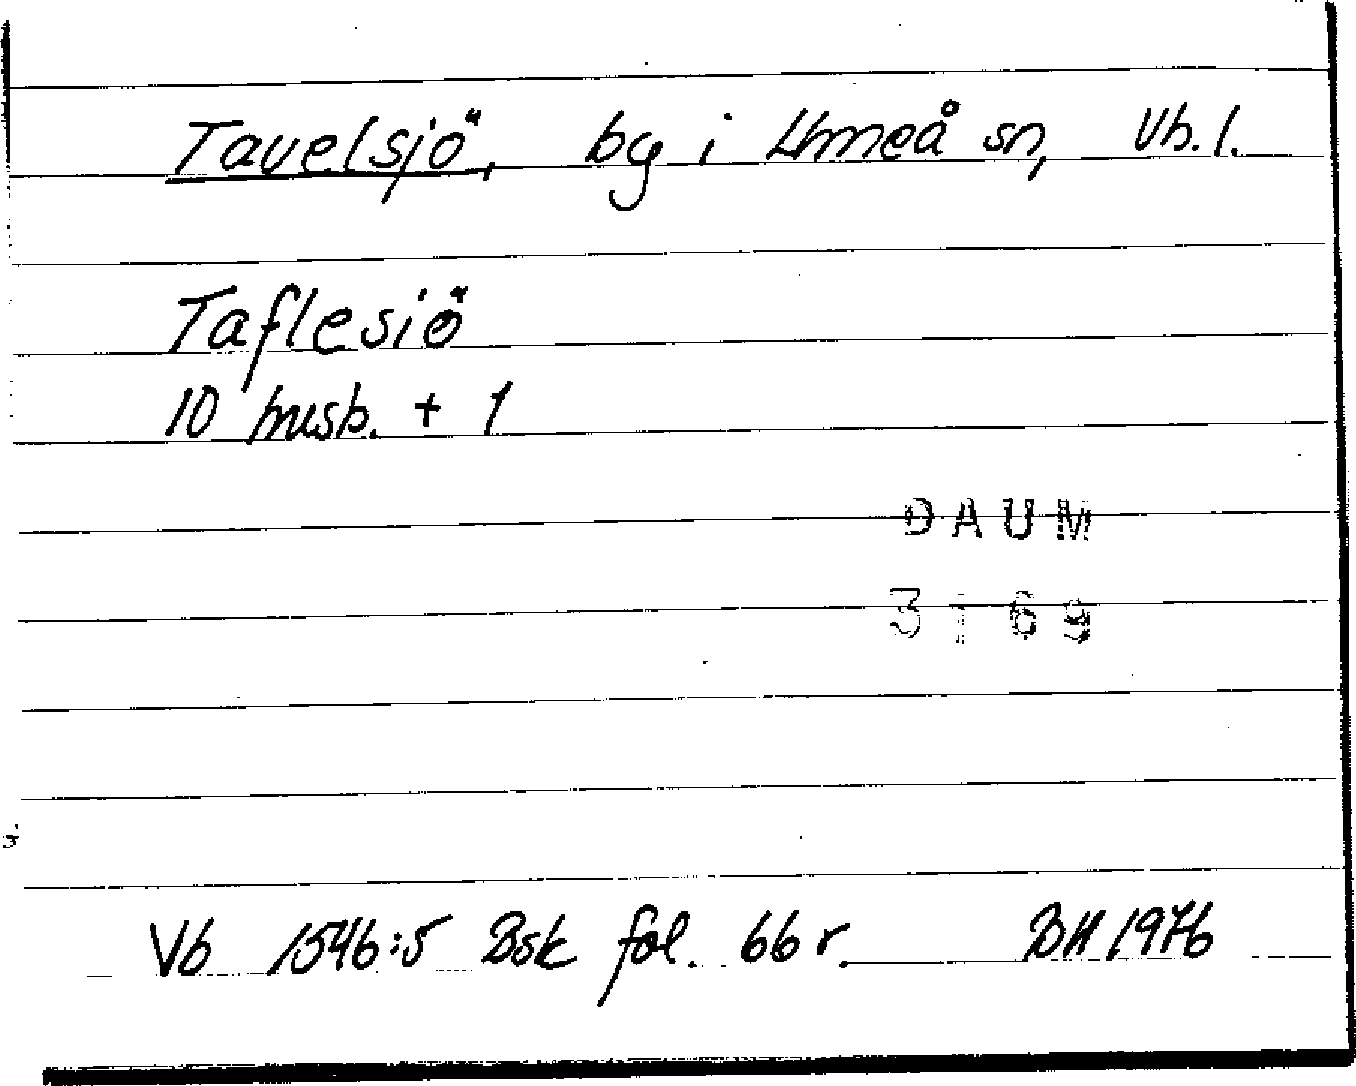 Tavelsjö, by i Umeå sn, Vb. l.
Taflesiö
10 husb. + 1
DAUM
3169
Vb 1546:5 Bsk fol. 66 r. BH 1976